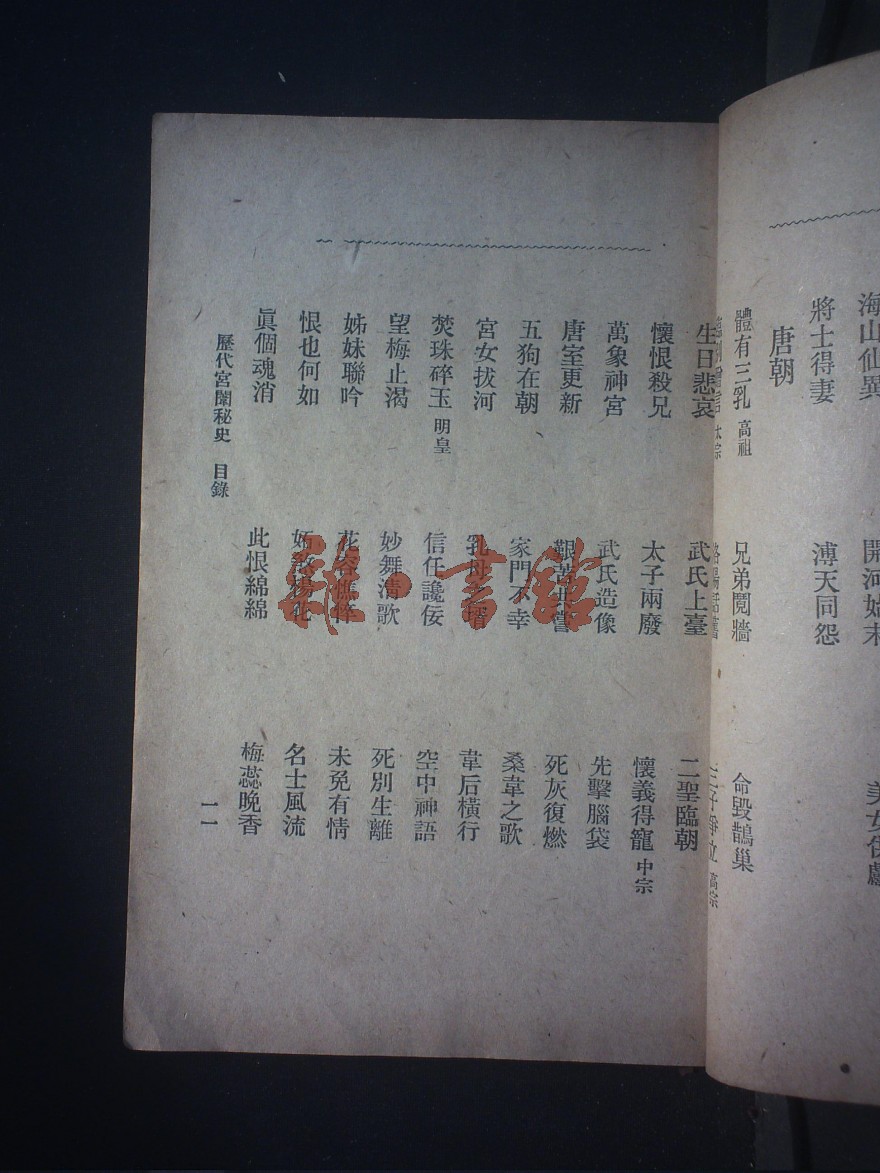 海山仙異 開河始末
將士得妻 溥天同怨
唐朝
體有三乳 高祖 兄弟鬩牆 命毀鵲巢
太宗 高宗
生日悲哀 武氏上臺 二聖臨朝
懷恨殺兄 太子兩廢 懷義得寵 中宗
萬象神宮 武氏造像 先擊腦袋
唐室更新 艱苦共嘗 死灰復燃
五狗在朝 家門不幸 桑韋之歌
宮女拔河 乳母之壻 韋后橫行
焚珠碎玉 明皇 信任讒佞 空中神語
望梅止渴 妙舞清歌 死別生離
姊妹聯吟 花容憔悴 未免有情
恨也何如 妬煞楊花 名士風流
眞個魂消 此恨綿綿 梅蕊晚香
歷代宮闈秘史 目錄 一一
雜·書館